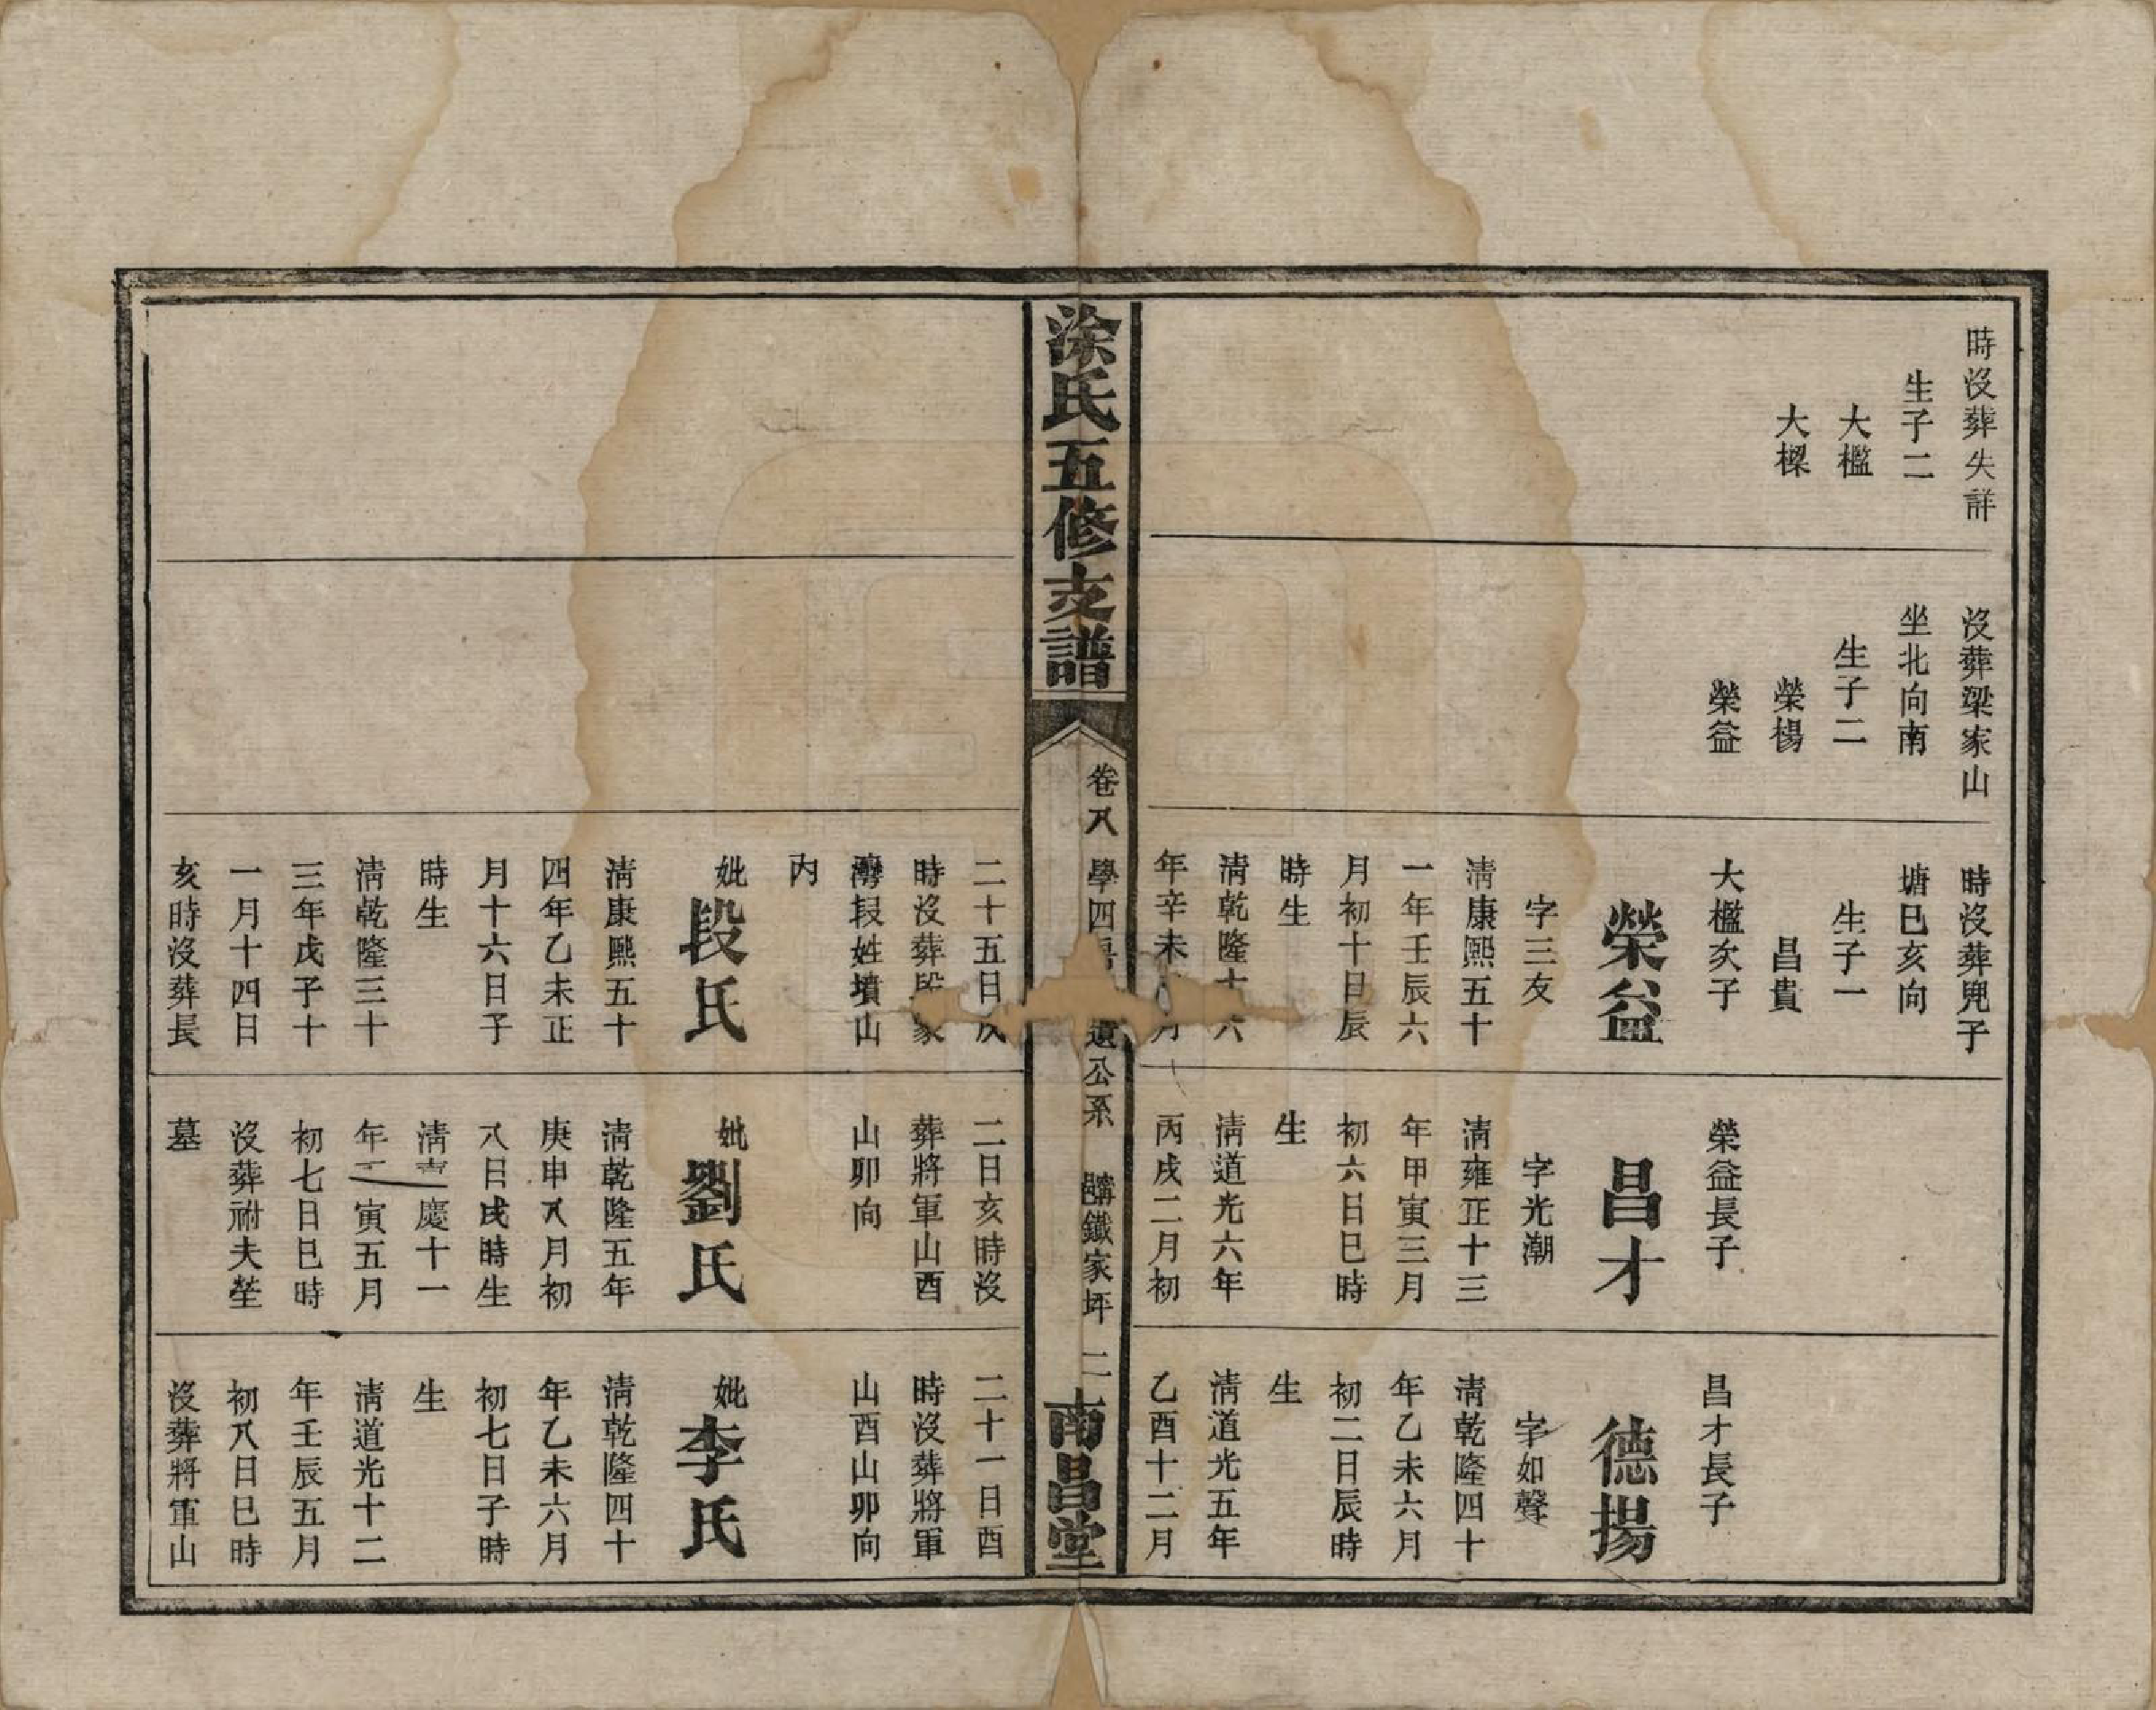 時沒葬失詳
生子二
大檻
大樑
沒葬梁家山
坐北向南
生子二
榮楊
榮益
時沒葬兕子
塘巳亥向
生子一
昌貴
大檻次子
榮益
字三友
清康熙五十
一年壬辰六
月初十日辰
時生
清乾隆十六
年辛未 月
二十五日戌
時沒葬段家
灣段姓墳山
內
妣段氏
清康熙五十
四年乙未正
月十六日子
時生
清乾隆三十
三年戊子十
一月十四日
亥時沒葬長
榮益長子
昌才
字光潮
清雍正十三
年甲寅三月
初六日巳時
生
清道光六年
丙戌二月初
二日亥時沒
葬將軍山酉
山卯向
妣劉氏
清乾隆五年
庚申八月初
八日戌時生
清嘉慶十一
年二寅五月
初七日巳時
沒葬祔夫塋
墓
昌才長子
德揚
字如聲
清乾隆四十
年乙未六月
初二日辰時
生
清道光五年
乙酉十二月
二十一日酉
時沒葬將軍
山酉山卯向
妣李氏
清乾隆四十
年乙未六月
初七日子時
生
清道光十二
年壬辰五月
初八日巳時
沒葬將軍山
涂氏五修支譜
卷八
學四 遺公系
鐵家坪
二
南昌堂